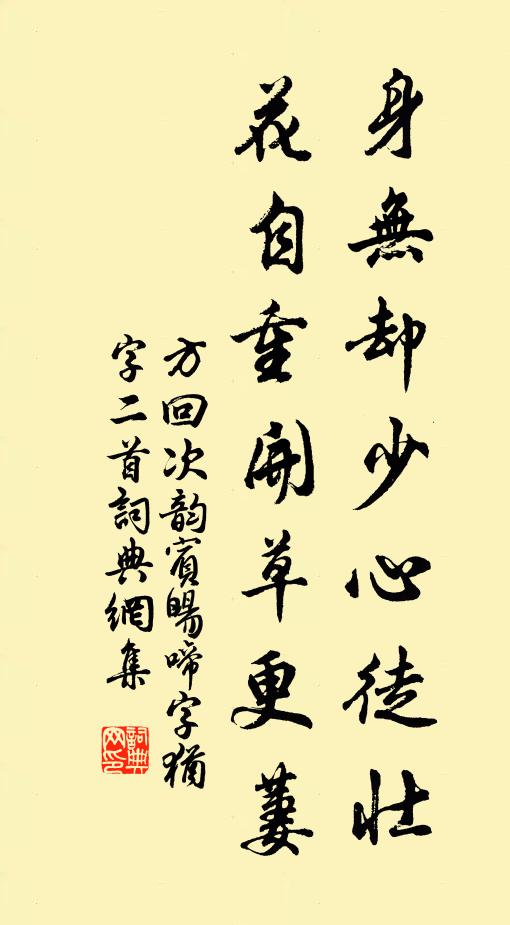 身無却少心徒壮
花自重開草更萋
方回次韵賓暘啼字猶
字二首詞典網集
詞典網印